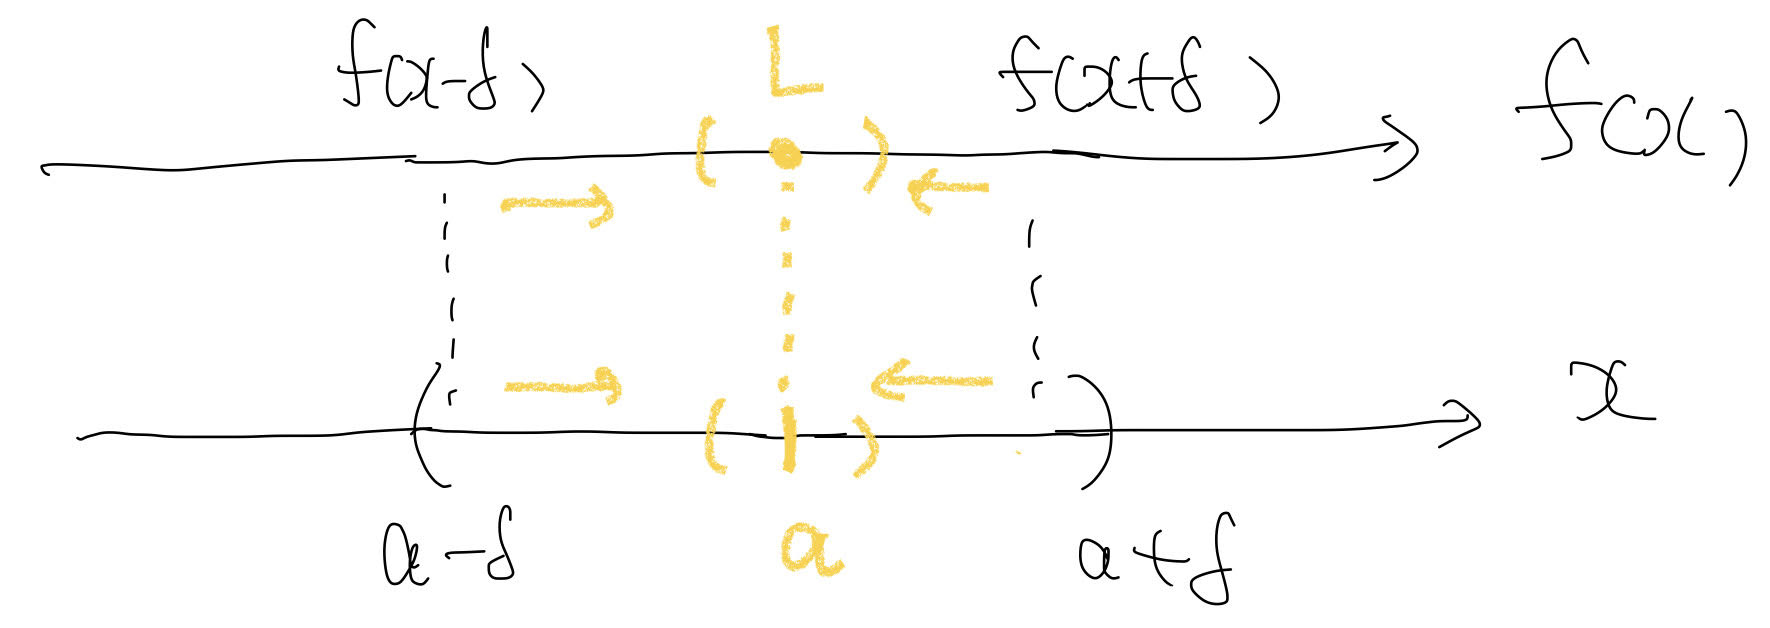 f(x-δ) L f(x+δ) f(x)
x
a-δ a a+δ